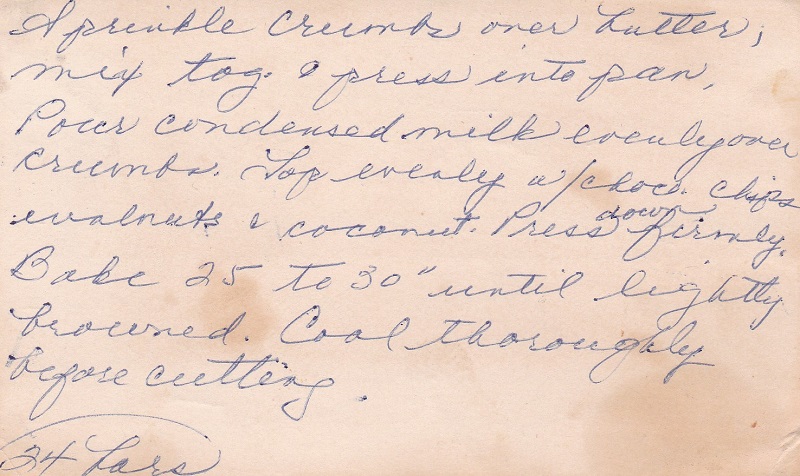 Sprinkle crumbs over butter;
mix tog. & press into pan.
Pour condensed milk evenly over
crumbs. Top evenly w/choc. chips
walnuts & coconut. Press down firmly.
Bake 25 to 30" until lightly
browned. Cool thoroughly
before cutting.
24 bars